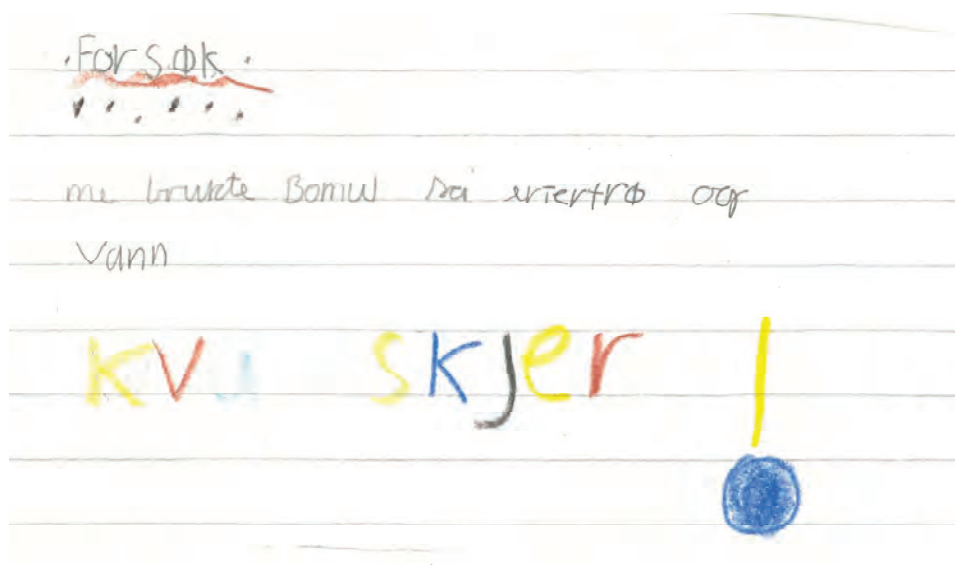 Forsøk
me brukte Bomul så erterfrø og
vann
kva skjer !